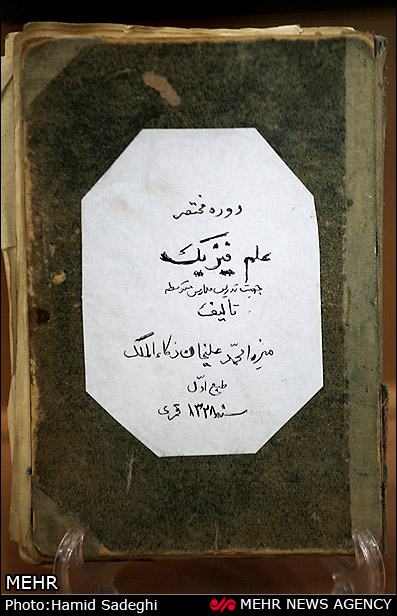 دوره مختصر
علم فیزیک
جهت تدریس مدارس متوسطه
تألیف
میرزا محمد علیخان ذکاءالملک
طبع اوّل
سنه ۱۳۲۸ قمری
MEHR
Photo:Hamid Sadeghi
MEHR NEWS AGENCY